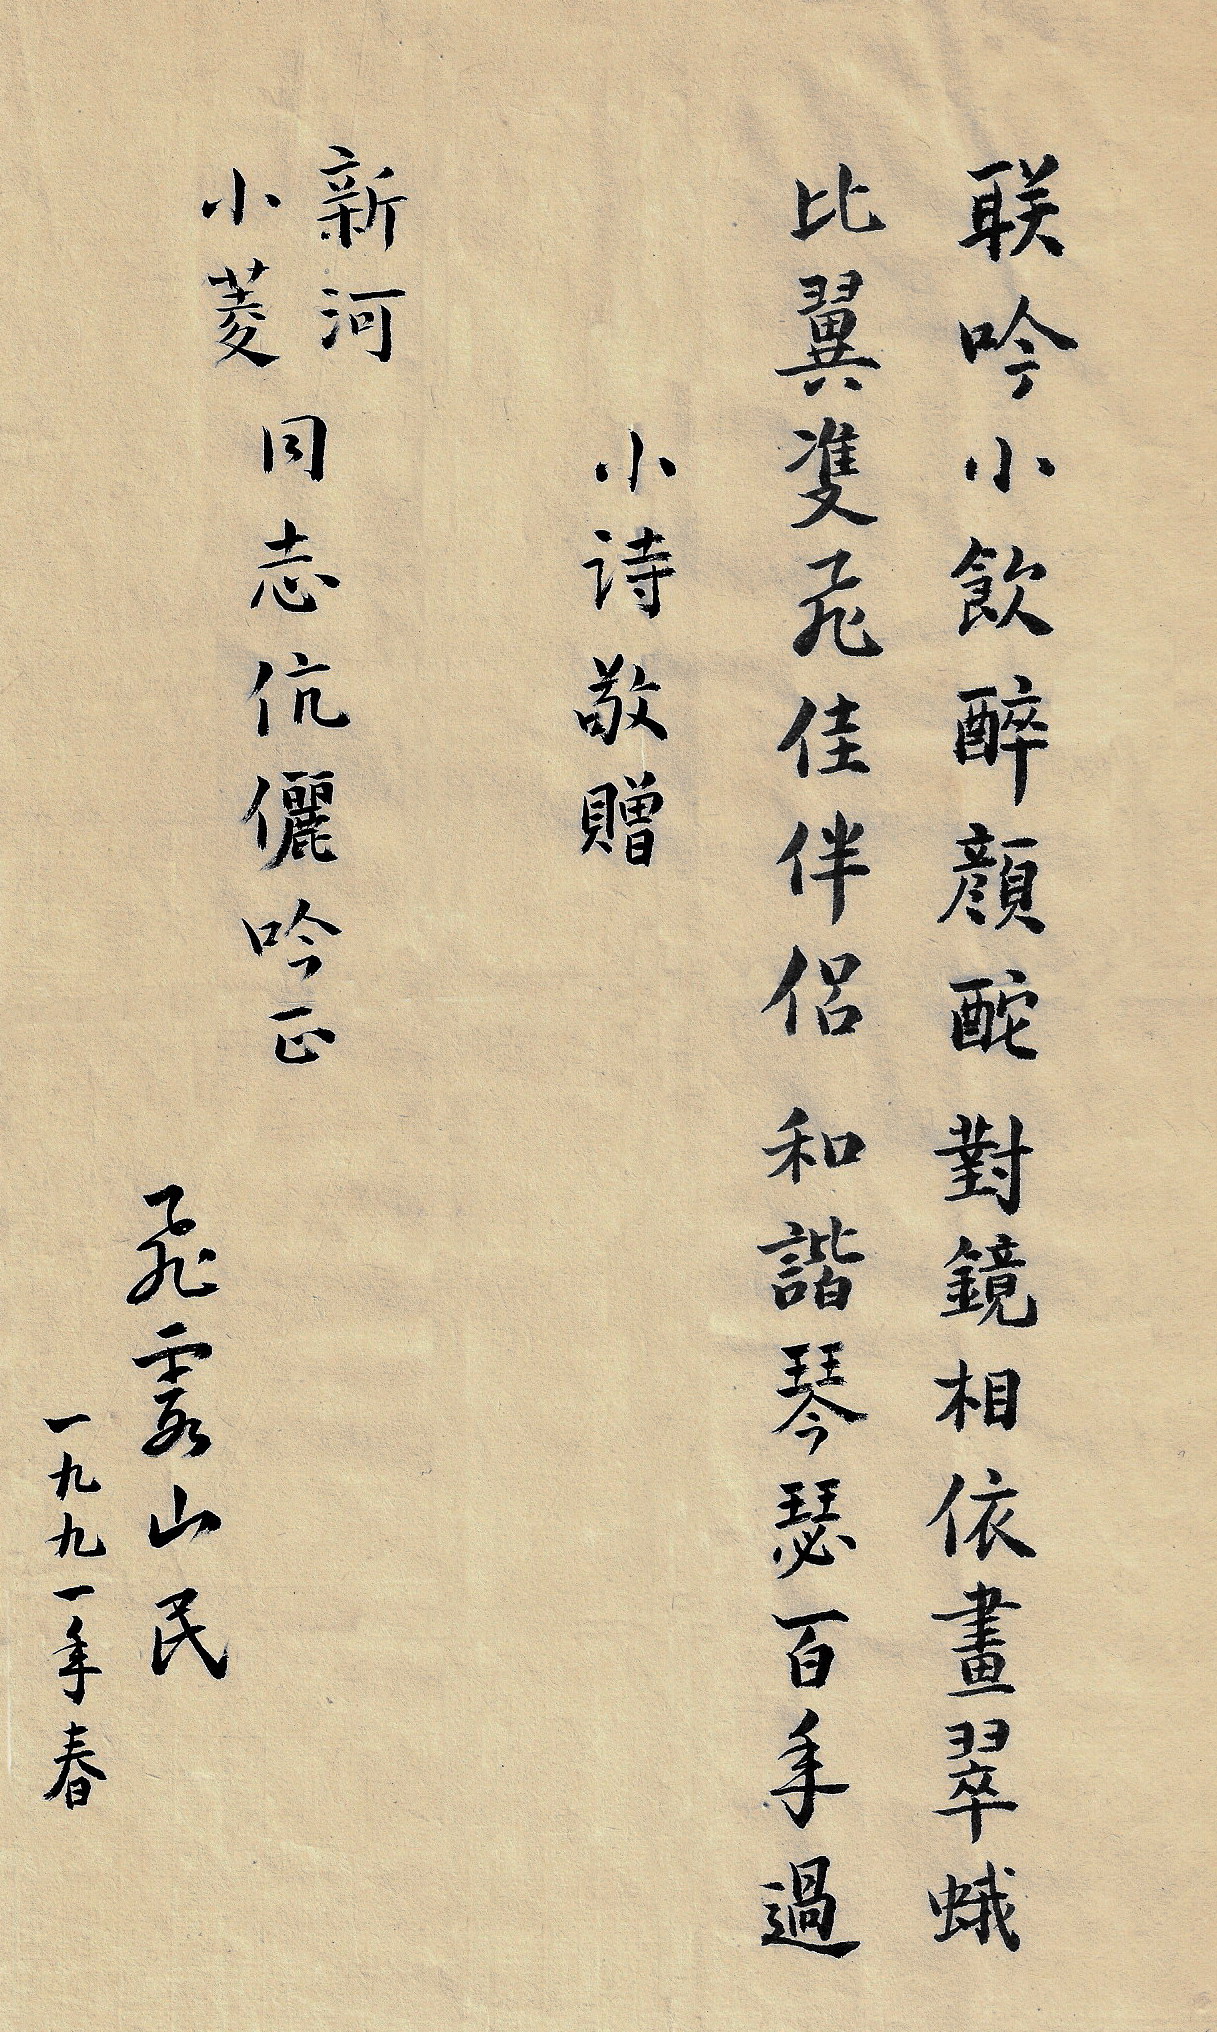 联吟小飲醉顔酡對鏡相依畫翠蛾
比翼雙飛佳伴侣和諧琴瑟百年過
小诗敬贈
新河
小菱
同志伉儷吟正
飛霞山民
一九九一年春